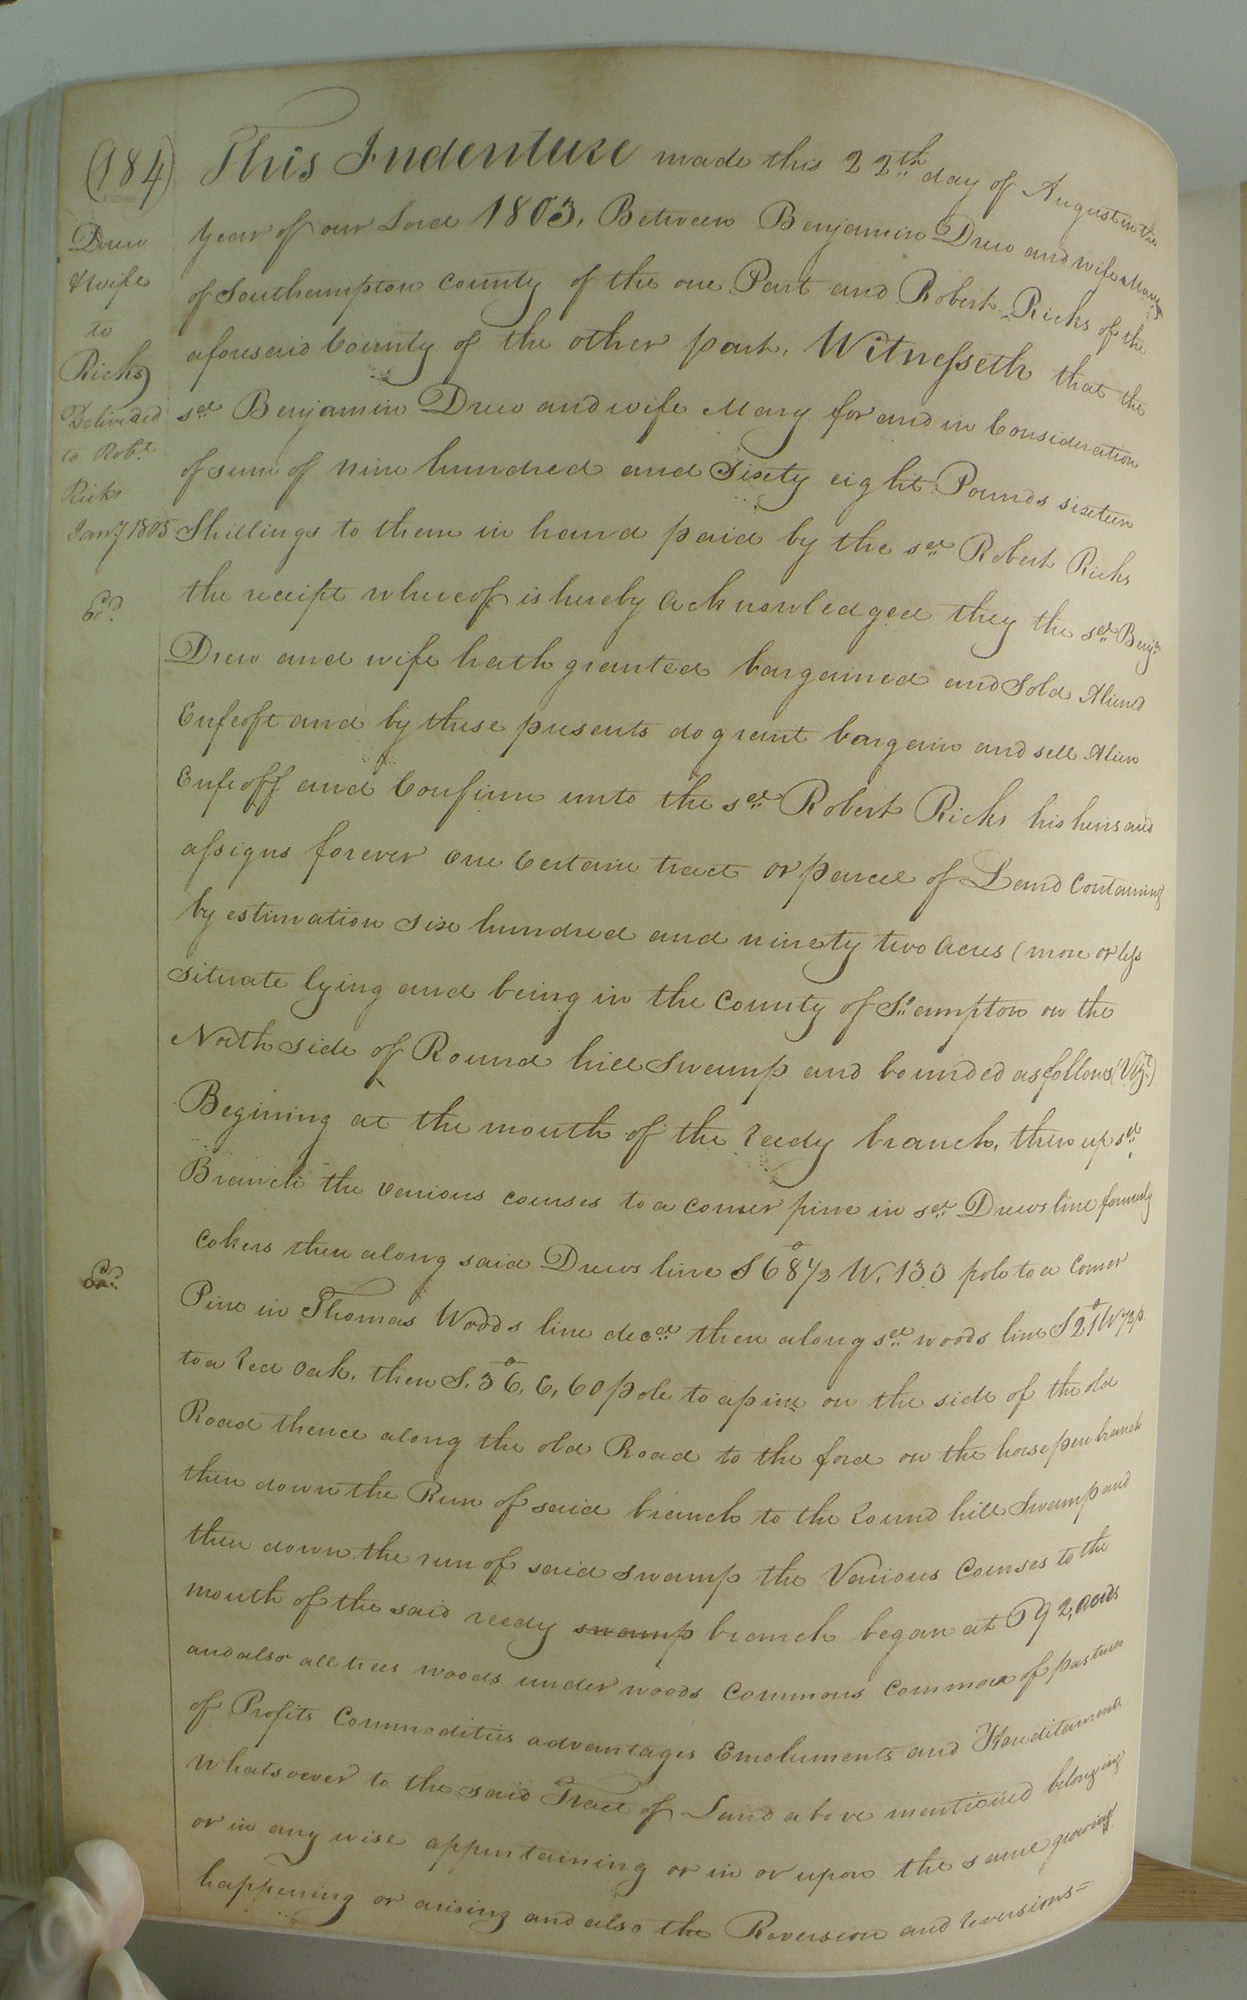 (184)
Drew
& wife
to
Ricks
Delivered
to Robt.
Ricks
Jany 1805
This Indenture made this 22th day of August in the
year of our Lord 1803, Between Benjamin Drew and wife Mary
of Southampton County of the one Part and Robert Ricks of the
aforesaid County of the other part, Witnesseth that the
sd. Benjamin Drew and wife Mary for and in Consideration
of sum of nine hundred and Sixty eight Pounds sixteen
Shillings to them in hand paid by the sd. Robert Ricks
the receipt whereof is hereby acknowledged they the sd. Benjn.
Drew and wife hath granted bargained and Sold Aliend
Enfeoft and by these presents do grant bargain and sell Alien
Enfeoff and Confirm unto the sd. Robert Ricks his heirs and
assigns forever one Certain tract or parcel of Land Containing
by estimation Six hundred and ninety two Acres (more or less
Situate lying and being in the County of So.ampton on the
North Side of Round hill Swamp and bounded as follows (Vizt.)
Begining at the mouth of the reedy branch, then up sd.
Branch the various courses to a corner pine in sd. Drews line formerly
Cokers then along said Drews line S 68°1/2 W, 133 pole to a Corner
Pine in Thomas Woods line decd. then along sd. woods line S 21° W 72 p.
to a red oak, then S. 36°, 6, 60 pole to a pine on the side of the old
Road thence along the old Road to the ford on the horse pen branch
then down the Run of said branch to the round hill Swamp and
then down the run of said swamp the Various Courses to the
mouth of the said reedy swamp branch began at 592, acres
and also all trees woods under woods Commons Common of pastures
of Profits Commodities advantages Emoluments and Hereditaments
whatsoever to the said Tract of Land above mentioned belonging
or in any wise appertaining or in or upon the same growing
happening or arising and also the Reversion and reversions=